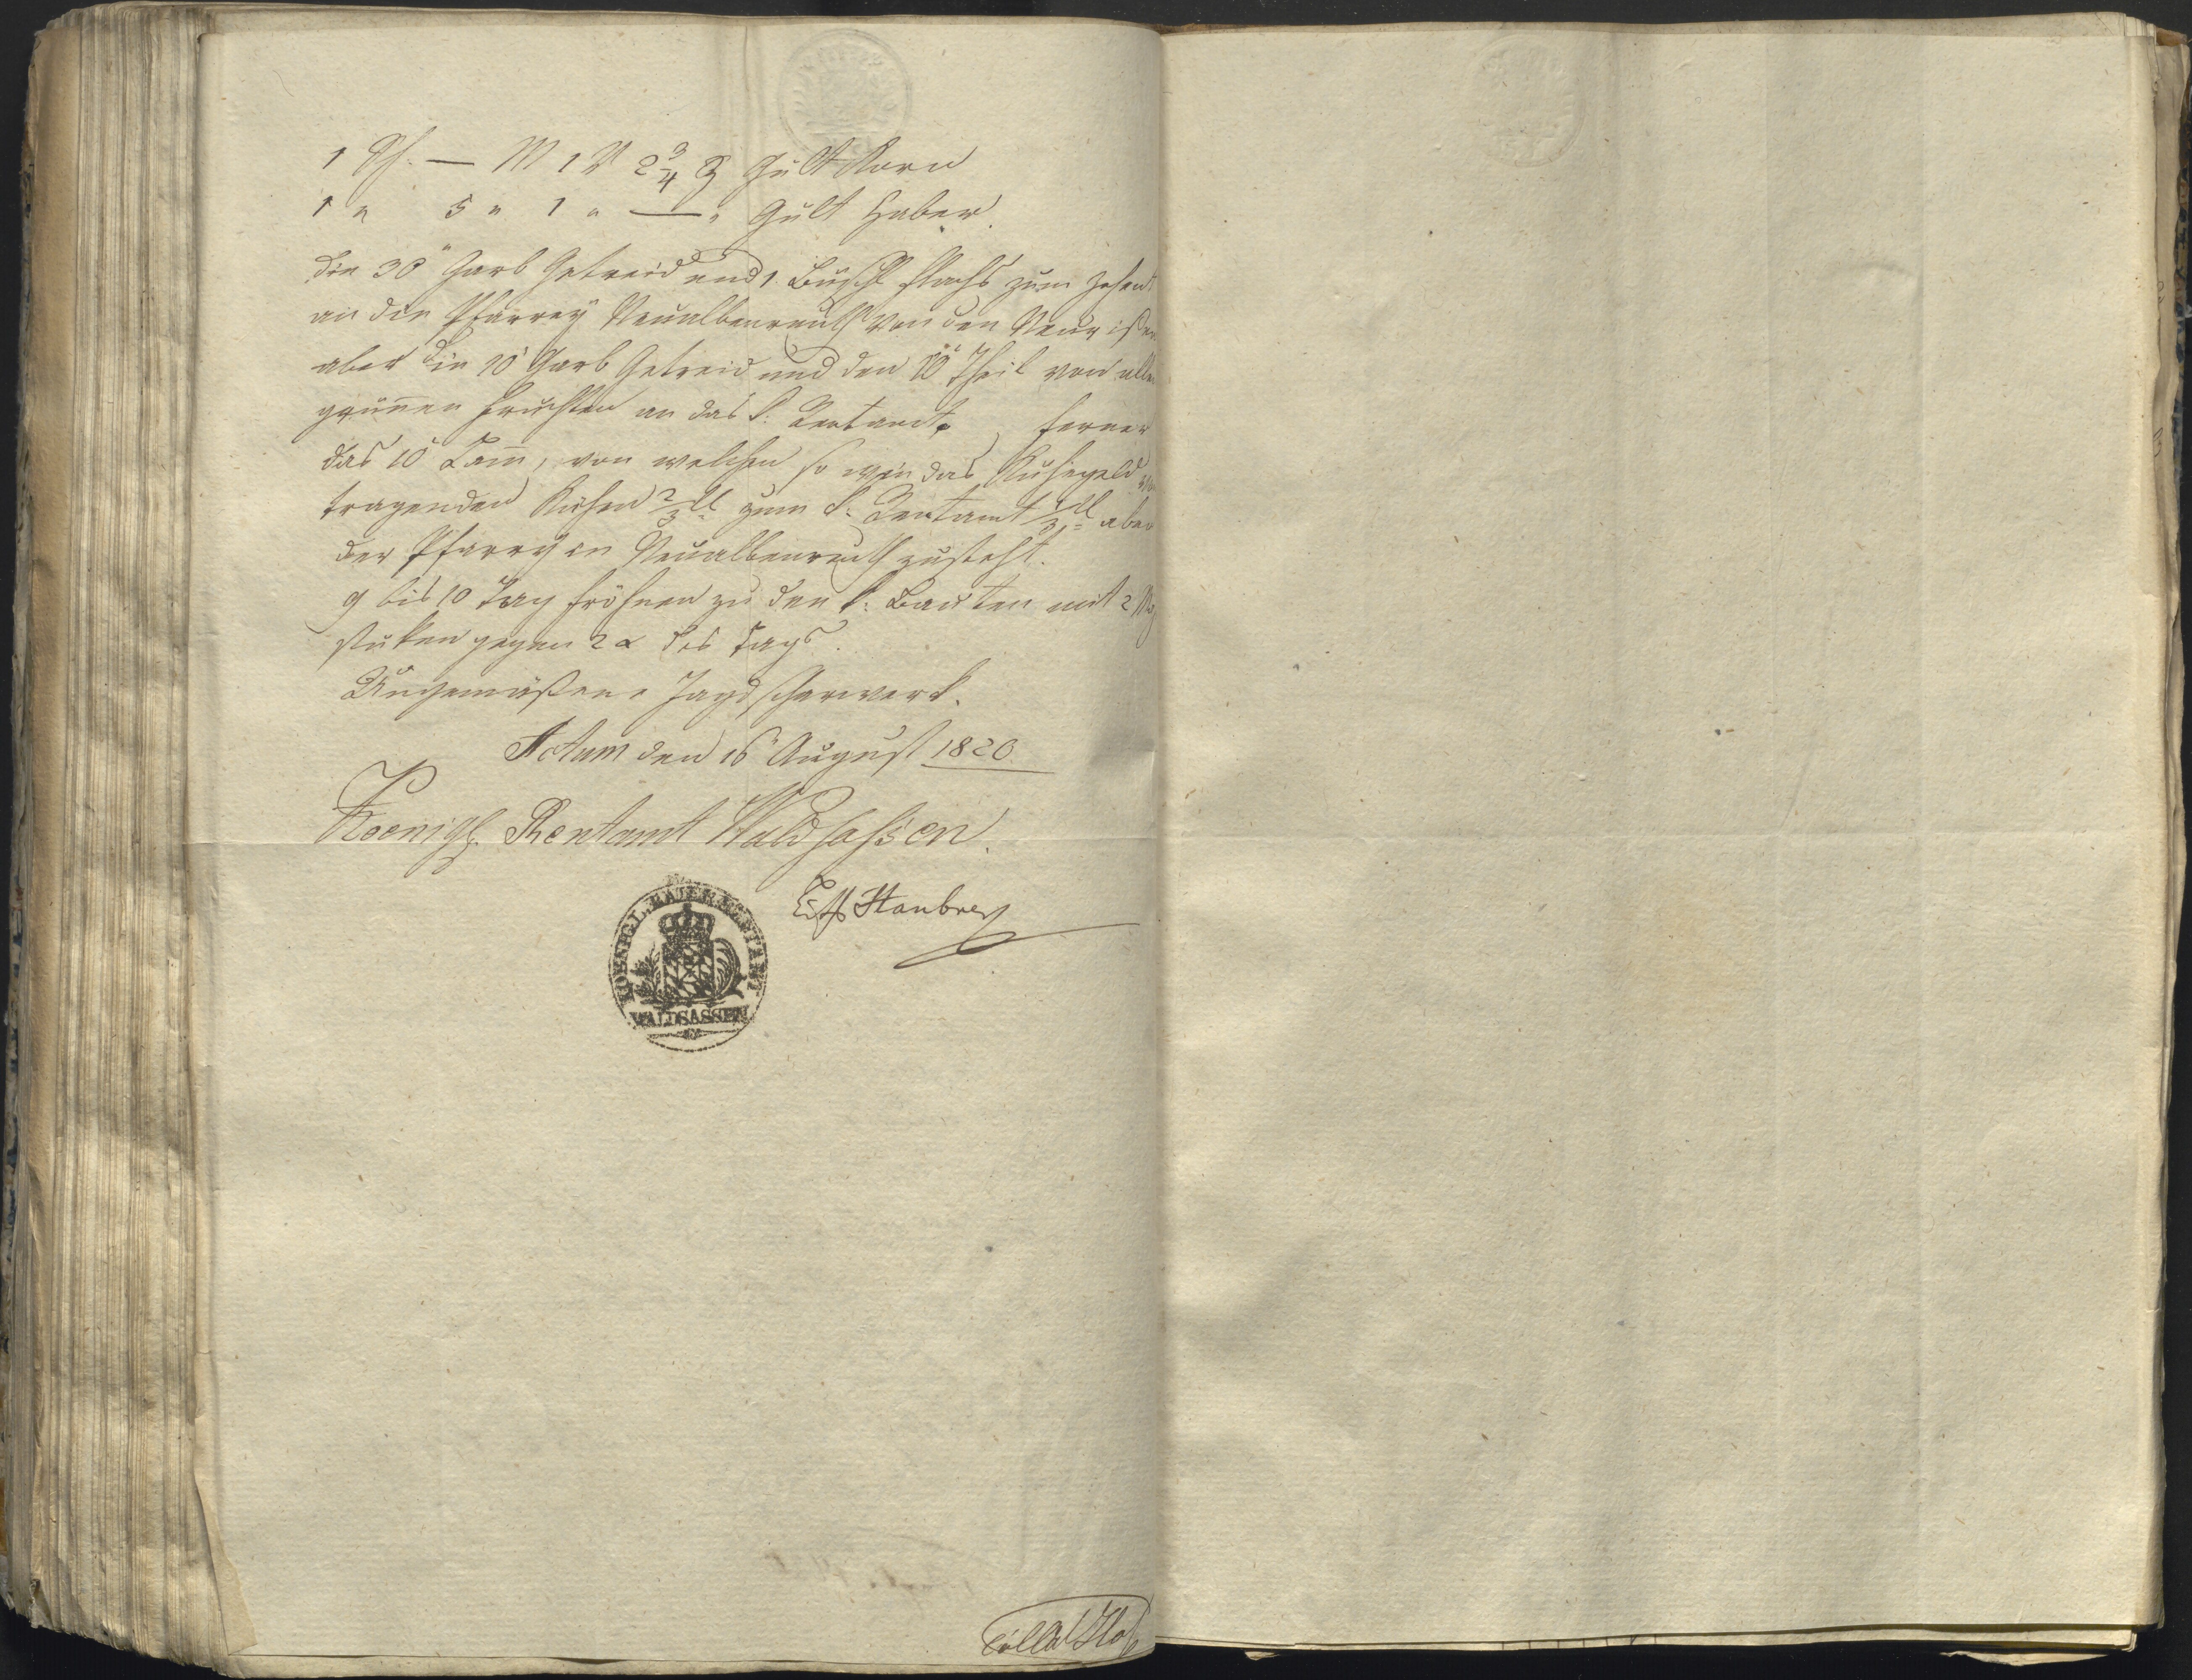 1 Sch. — M 1 V 2 3/4 S Gült Korn
1 " 5 " 1 " — " Gült Haber.
die 30te Garb Getreid und 1 Büschl Flachs zum Zehent
an die Pfarrey Neualbenreuth von den Neurißen
aber die 10te Garb Getreid und den 10te Theil von allen
grünnen Früchten an das k. Rentamt, ferner
das 10te Lam̅, von welchen so wie das Kuhegeld von
tragenden Kühen 2/3tl zum k. Rentamt 1/3tl aber
der Pfarrey in Neualbenreuth zusteht.
9 bis 10 Tag fröhnen zu den k. Bauten mit 2
stuken gegen 2 x des Tags.
Ungemäßene Jagdscharwerk.
Actum den 16te August 1820
Koenigl. Rentamt Waldsassen.
KOENIGL. BAIER. RENTAMT
WALDSASSEN